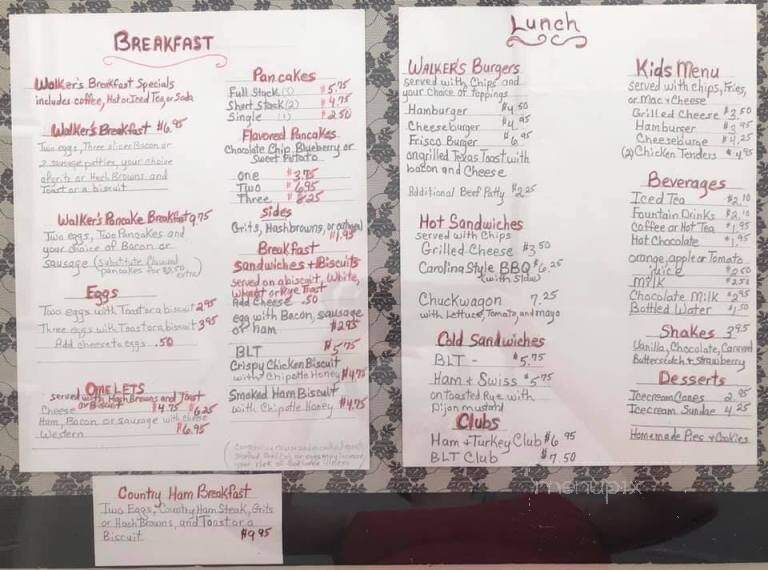 BREAKFAST
Walker's Breakfast Specials
includes coffee, Hot or Iced Tea, or Soda
Walker's Breakfast $6.95
Two eggs, Three slices Bacon or
2 sausage patties, your choice
of grits or Hash Browns and
Toast or a biscuit
Walker's Pancake Breakfast 9.75
Two eggs, Two Pancakes and
your choice of Bacon or
sausage (substitute Flavored
pancakes for $2.50 extra)
Eggs
Two eggs with Toast or a biscuit 2.95
Three eggs with Toast or a biscuit 3.95
Add cheese to eggs .50
OMELETS
served with Hash Browns and Toast
or Biscuit
Cheese $4.75 $6.25
Ham, Bacon or sausage with cheese
Western $6.95
Pancakes
Full Stack $5.75
Short Stack (2) $4.75
Single (1) $2.50
Flavored Pancakes
Chocolate Chip, Blueberry or
Sweet Potato
one $3.75
Two $6.95
Three $8.25
Sides
Grits, Hashbrowns, or oatmeal
$1.95
Breakfast
Sandwiches + Biscuits
served on a biscuit, White,
Wheat or Rye Toast
Add Cheese .50
egg with Bacon, sausage
or ham $2.95
BLT $5.75
Crispy Chicken Biscuit
with Chipotle Honey $4.75
Smoked Ham Biscuit
with Chipotle Honey $4.75
your risk of
Country Ham Breakfast
Two Eggs, Country Ham Steak, Grits
or Hash Browns, and Toast or a
Biscuit $9.95
Lunch
WALKER'S Burgers
served with Chips and
your choice of toppings
Hamburger $4.50
Cheeseburger $4.95
Frisco Burger $6.95
on grilled Texas Toast with
bacon and Cheese
Additional Beef Patty $2.25
Hot Sandwiches
served with Chips
Grilled Cheese $3.50
Carolina Style BBQ $6.25
(with slaw)
Chuckwagon 7.25
with Lettuce, Tomato, and mayo
Cold Sandwiches
BLT - $5.75
Ham + Swiss $5.75
on toasted Rye with
Dijon mustard
Clubs
Ham + Turkey Club $6.95
BLT Club $7.50
Kids Menu
served with chips, Fries,
or Mac + Cheese
Grilled Cheese $3.50
Hamburger $3.95
Cheeseburger $4.25
(2) Chicken Tenders $4.95
Beverages
Iced Tea $2.10
Fountain Drinks $2.10
Coffee or Hot Tea $1.95
Hot Chocolate $1.95
orange, apple or Tomato
juice $2.50
Milk $2.50
Chocolate Milk $2.95
Bottled Water $1.50
Shakes 3.95
Vanilla, Chocolate, Caramel
Butterscotch + Strawberry
Desserts
Icecream Cones 2.95
Icecream Sundae 4.25
Homemade Pies + Cookies
menupix